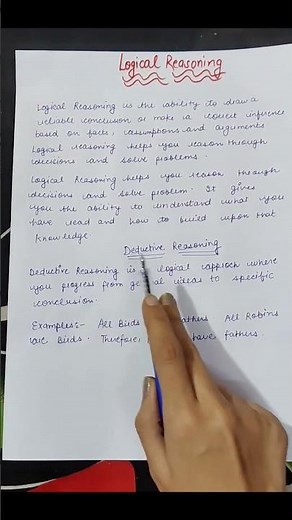 Logical Reasoning
Logical Reasoning is the ability to draw a
reliable conclusion or make a correct inference
based on facts, assumptions and arguments
Logical reasoning helps you reason through
decisions and solve problems.
Logical Reasoning helps you reason through
decisions and solve problem. It gives
you the ability to understand what you
have read and how to build upon that
knowledge
Deductive Reasoning
Deductive Reasoning is logical approach where
you progress from general ideas to specific
conclusion.
Examples:- All Birds All Robins
are Birds. Therefore, have fathers.